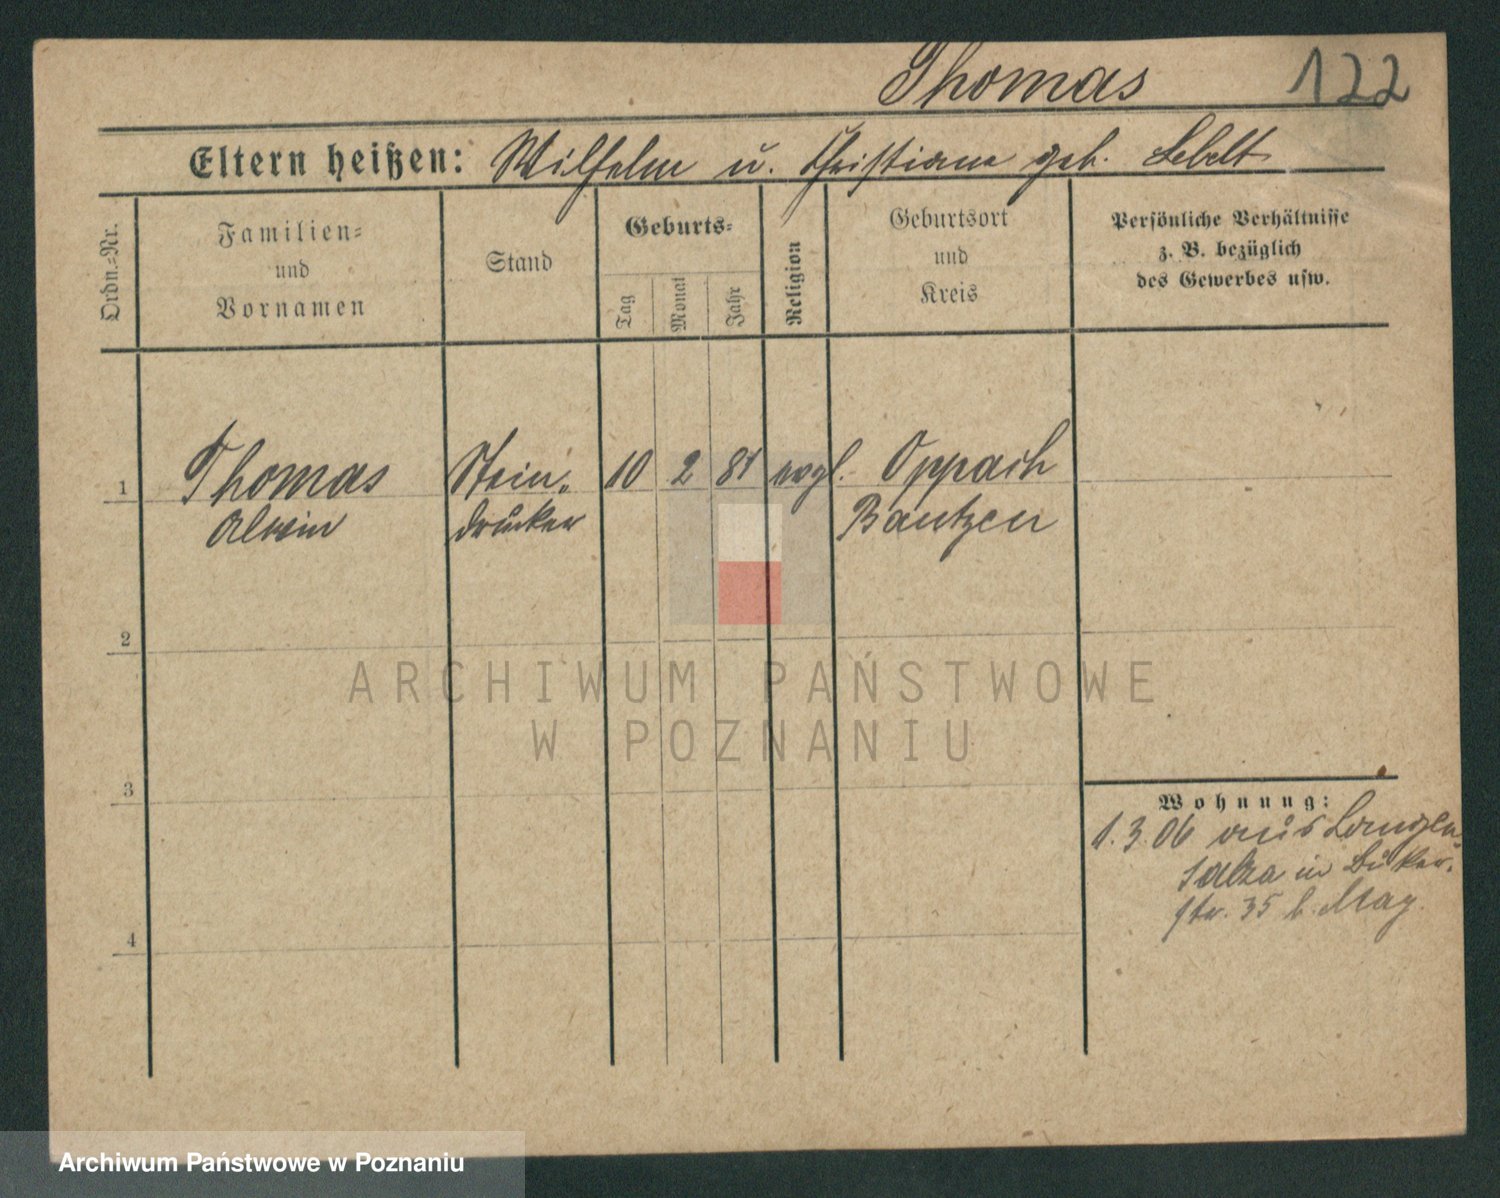 Thomas 122
Eltern heißen: Wilhelm u. Christiane geb. Lebelt
Ordn.-Nr.
Familien-
und
Vornamen
Stand
Geburts-
Tag Monat Jahr
Religion
Geburtsort
und
Kreis
Persönliche Verhältnisse
z. B. bezüglich
des Gewerbes usw.
1 Thomas Stein- 10 2 81 evgl. Oppach
Alwin drucker Bautzen
2
3
4
Wohnung:
1.3.06 aus Langen-
salza in
str. 35 b. May
ARCHIWUM PAŃSTWOWE
W POZNANIU
Archiwum Państwowe w Poznaniu